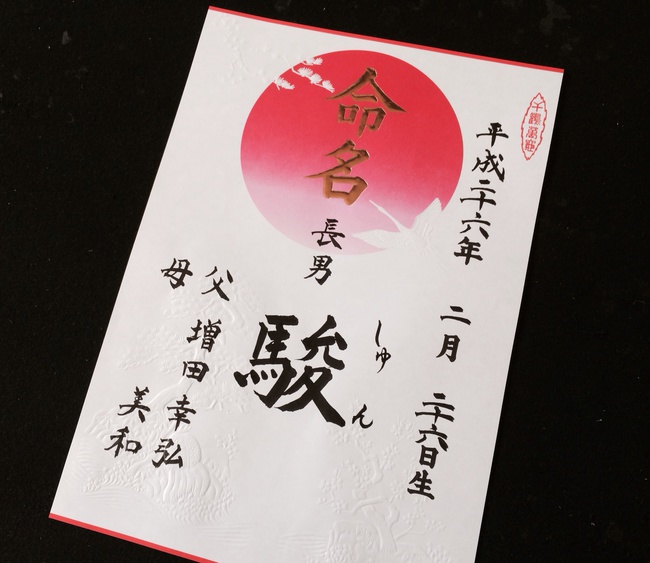 命名
平成二十六年 二月 二十六日生
長男
駿
しゅん
父 増田幸弘
母 美和